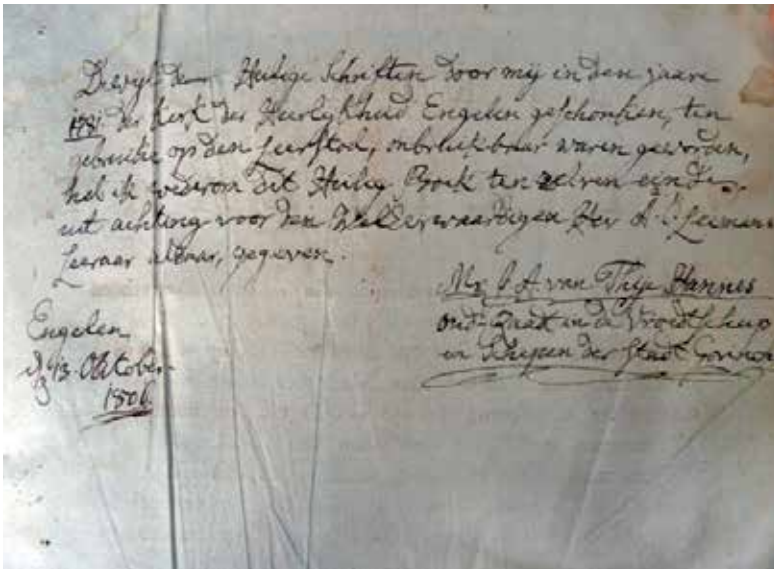 Dewyl de Heilige Schriften door mij in den jaare
1781 der Kerk der Heerlykheid Engelen geschonken, ten
gebruike op den Leerstoel, onbruikbaar waren geworden,
heb ik wederom dit Heilig Boek ten zelven einde,
uit achting voor den WelEerwaardigen Heer Leeman
Leeraar aldaar, gegeven.
Mr. A. van Thye Hannes
oud-Raad in de Vroedschap
en Schepen der Stadt
Engelen
13 Oktober
1806